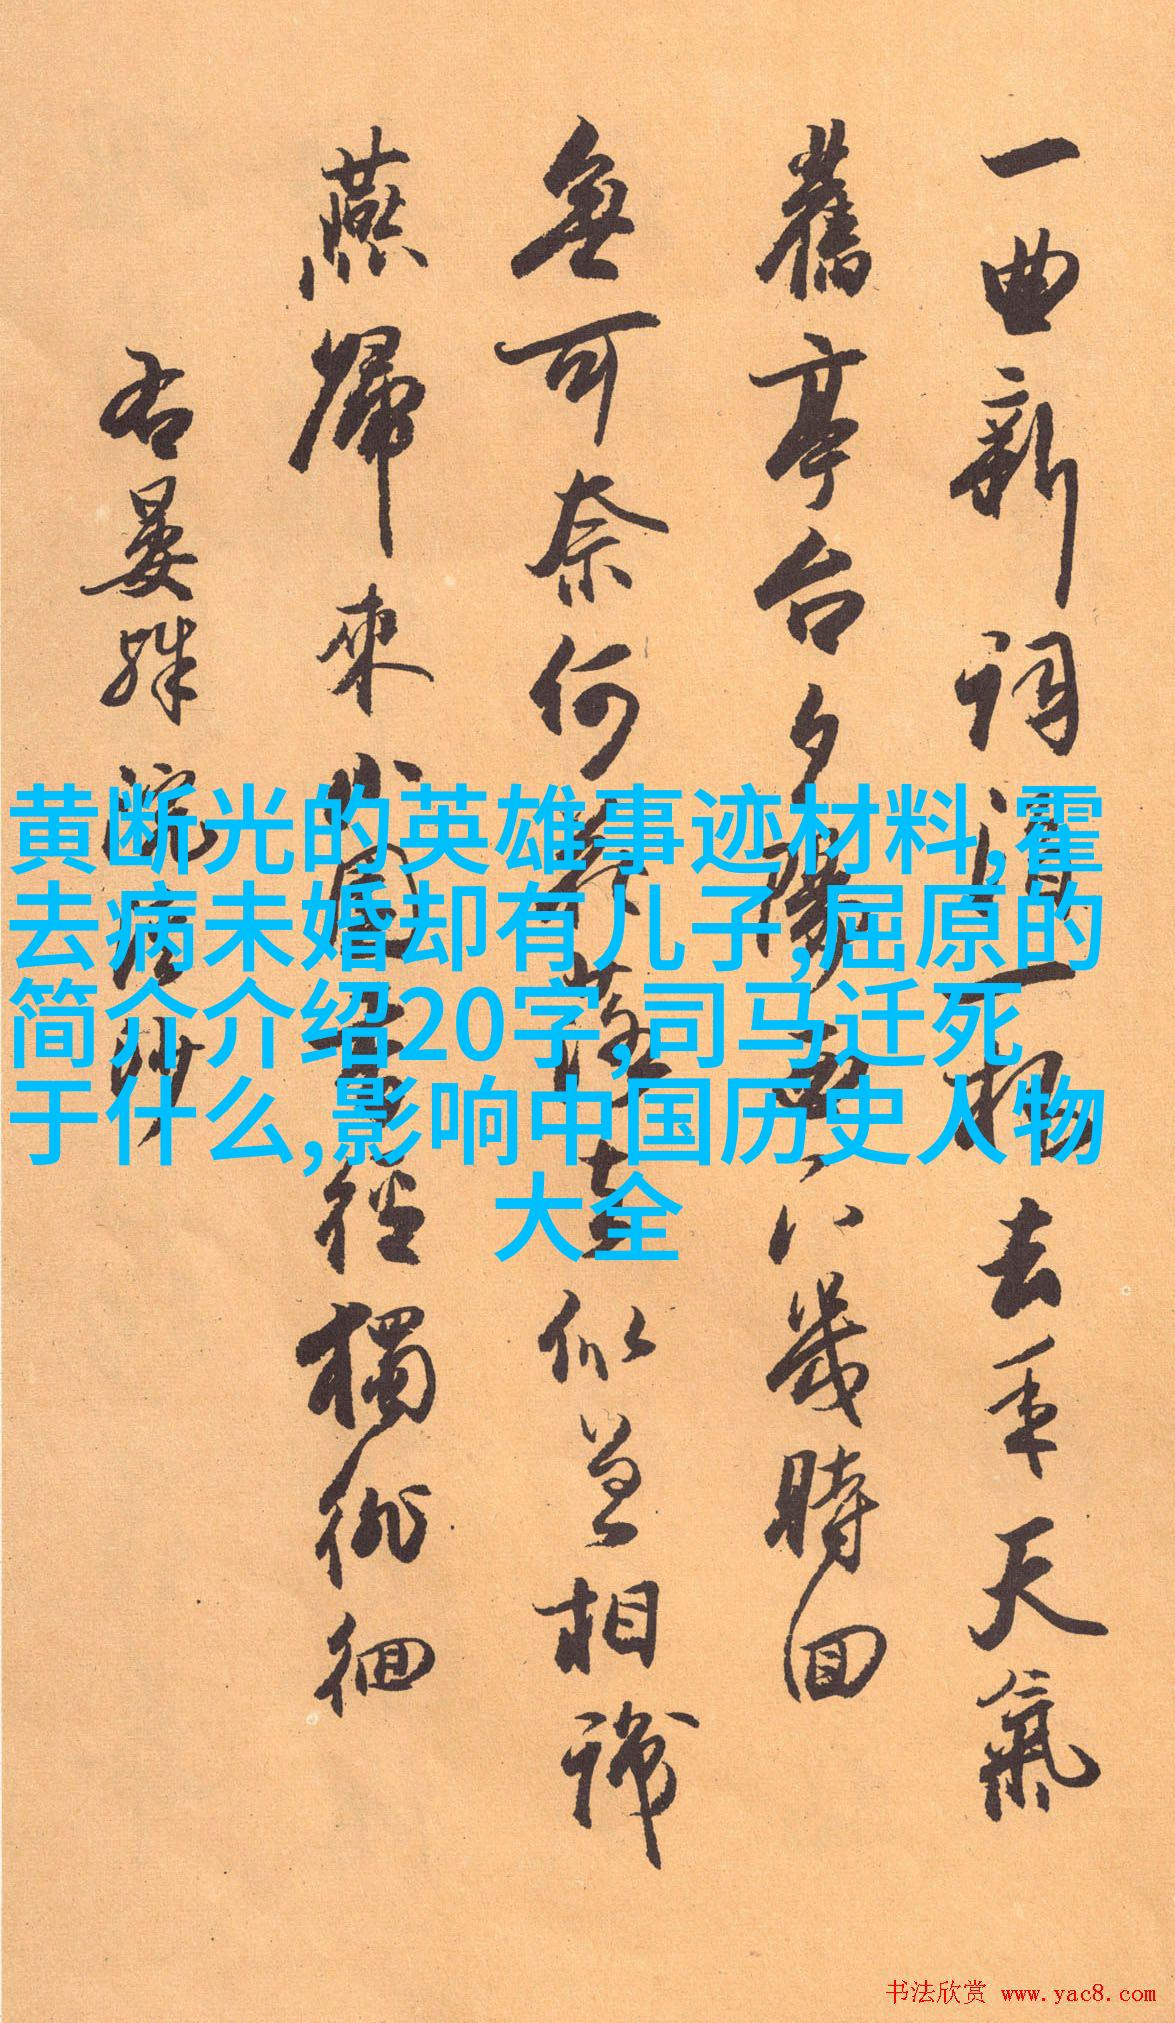 一曲新詞酒一杯去年天氣
舊亭台夕陽西下幾時回
無可奈何花落去似曾相識
燕歸來小園香徑獨徘徊
右晏殊浣溪沙
黄断光的英雄事迹材料,霍
去病未婚却有儿子,屈原的
简介介绍20字,司马迁死
于什么,影响中国历史人物
大全
书法欣赏 www.yac8.com